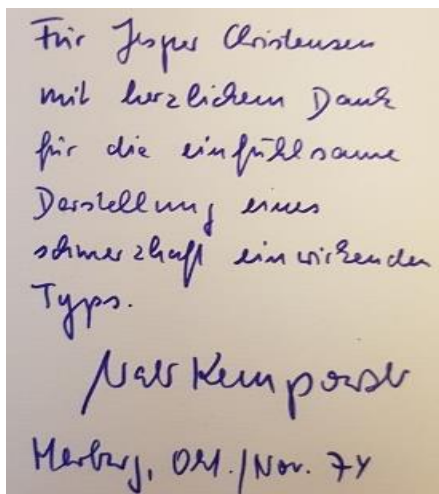 Für Jesper Christensen
mit herzlichem Dank
für die einfühlsame
Darstellung eines
schmerzhaft einwirkenden
Typs.
Walter Kempowski
Marburg, Okt./Nov. 74